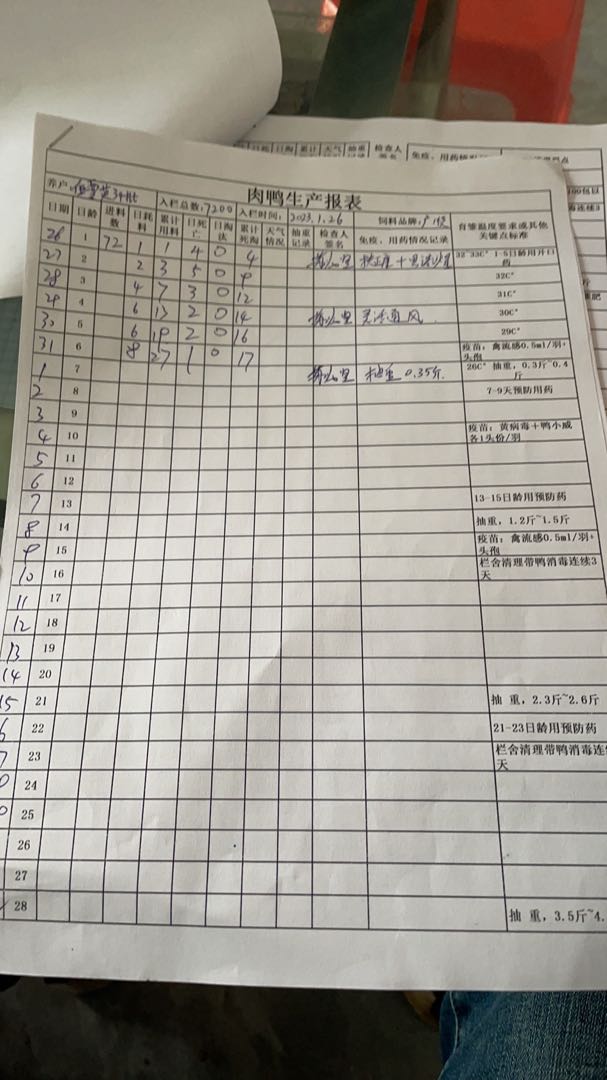 肉鸭生产报表
养户: 入栏总数:7200 入栏时间: 2023.1.26 饲料品牌:
日期 日龄 进料数 日耗料 累计用料 日死亡 日淘汰 累计死淘 天气情况 抽重记录 检查人签名 免疫、用药情况记录 育雏温度要求或其他关键点标准
26 1 72 1 1 4 0 4 32~33C° 1-5日龄用开口药
27 2 2 3 5 0 9 32C°
28 3 4 7 3 0 12 31C°
29 4 6 13 2 0 14 30C°
30 5 6 19 2 0 16 29C°
31 6 8 27 1 0 17 疫苗:禽流感0.5ml/羽+头孢
1 7 抽重 0.35斤 26C° 抽重,0.3斤~0.4斤
2 8 7-9天预防用药
3 9
4 10 疫苗:黄病毒+鸭小威各1头份/羽
5 11
6 12
7 13 13-15日龄用预防药
8 14 抽重,1.2斤~1.5斤
9 15 疫苗:禽流感0.5ml/羽+头孢
10 16 栏舍清理带鸭消毒连续3天
11 17
12 18
13 19
14 20
15 21 抽 重,2.3斤~2.6斤
6 22 21-23日龄用预防药
7 23 栏舍清理带鸭消毒连 天
24
25
26
27
28 抽 重,3.5斤~4.